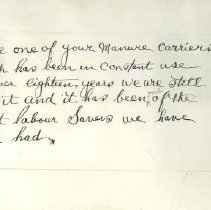 e one of your Manure Carriers
h has been in Constant use
ver eighteen years we are still
it and it has been, of the
t Labour Savers we have
had.